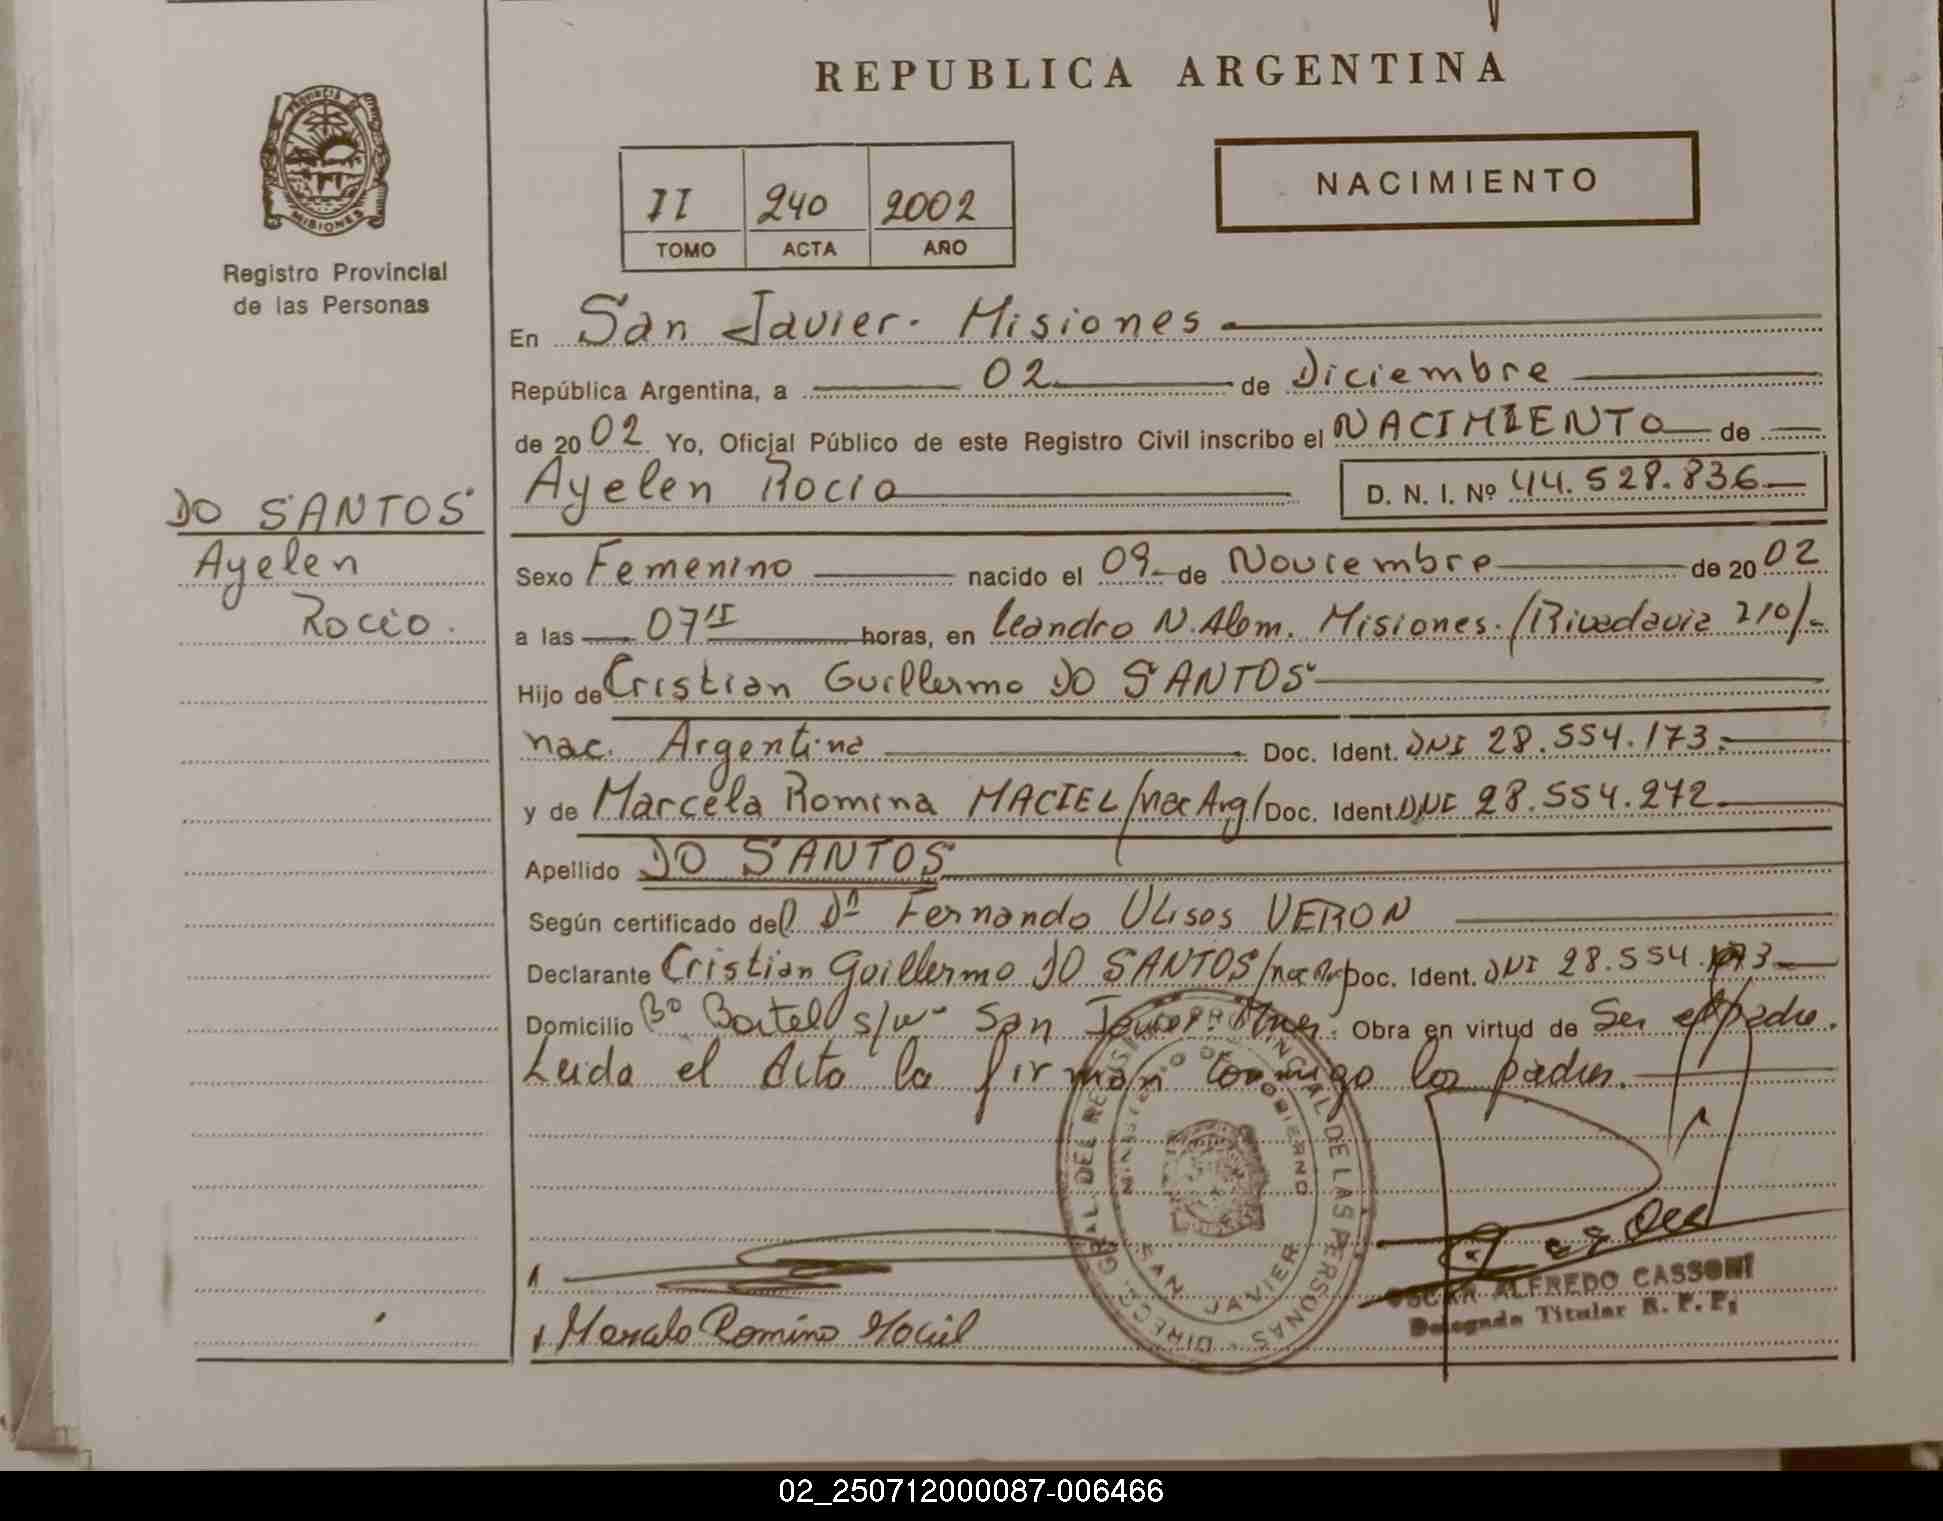 REPUBLICA ARGENTINA
PROVINCIA DE
MISIONES
Registro Provincial
de las Personas
NACIMIENTO
II 240 2002
TOMO ACTA AÑO
En San Javier. Misiones
República Argentina, a 02 de Diciembre
de 2002 Yo, Oficial Público de este Registro Civil inscribo el NACIMIENTO de
Ayelen Rocio D. N. I. Nº 44.528.836
DO SANTOS
Ayelen
Rocio.
Sexo Femenino nacido el 09 de Noviembre de 2002
a las 07 horas, en Leandro N. Alem. Misiones./Rivadavia 210/-
Hijo de Cristian Guillermo DO SANTOS
nac. Argentina Doc. Ident. DNI 28.554.173.-
y de Marcela Romina MACIEL/nac Arg/Doc. Ident. DNI 28.554.272
Apellido DO SANTOS
Según certificado del Dn Fernando Ulises VERON
Declarante Cristian Guillermo DO SANTOS/nac Arg Doc. Ident. DNI 28.554.173
Domicilio Bº s/nº San Javier. Mnes. Obra en virtud de Ser el padre.
Leida el Acta la firman conmigo los padres.
DIRECC. GRAL DEL REGISTRO PROVINCIAL DE LAS PERSONAS
MINISTERIO DE GOBIERNO
SAN JAVIER
OSCAR ALFREDO CASSONI
Delegado Titular R. P. P.
Marcela Romina Maciel
02_250712000087-006466